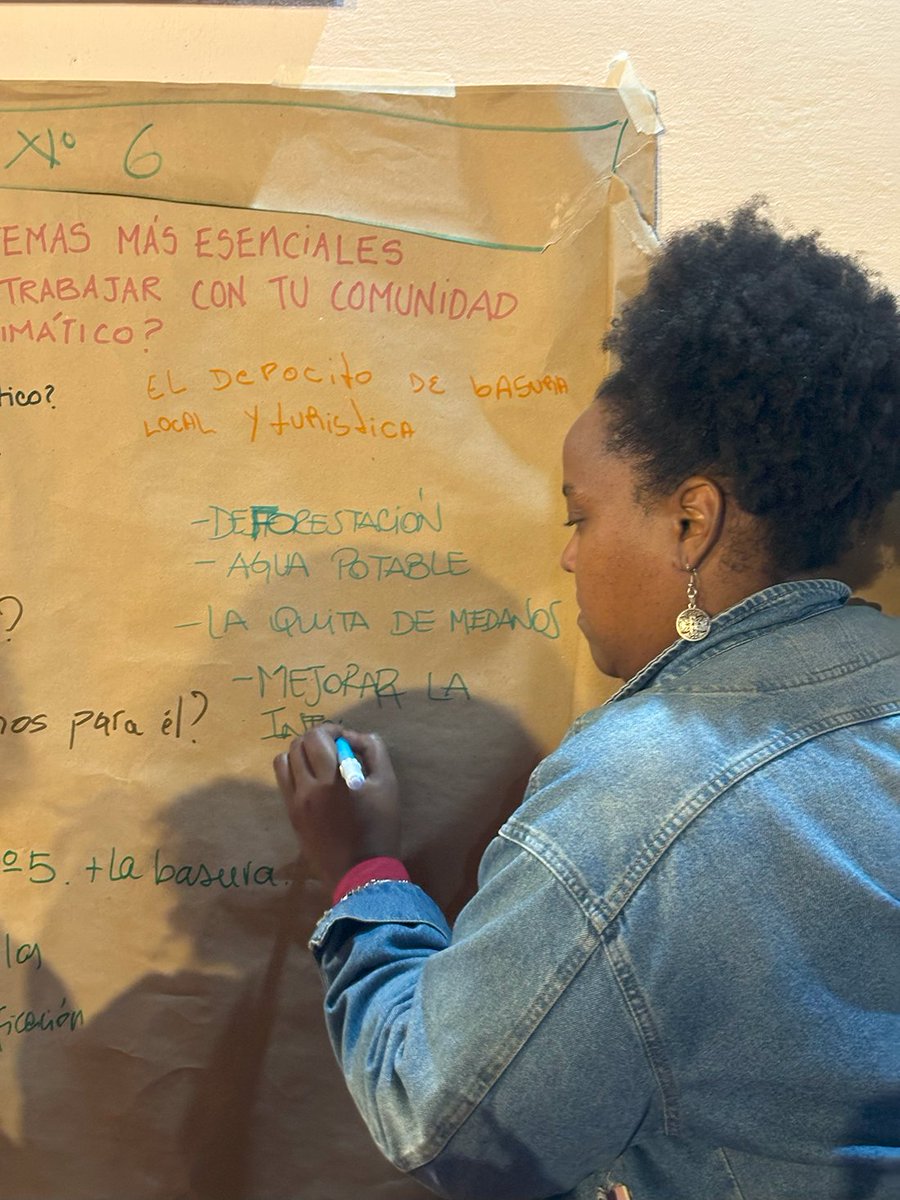 Nº 6
EMAS MÁS ESENCIALES
TRABAJAR CON TU COMUNIDAD
IMÁTICO?
tico?
EL DEPOCITO DE BASURA
LOCAL Y TURISTICA
-DEFORESTACIÓN
- AGUA POTABLE
?
-LA QUITA DE MEDANOS
-MEJORAR LA
nos para él?
º5. + La basura.
las
ficación